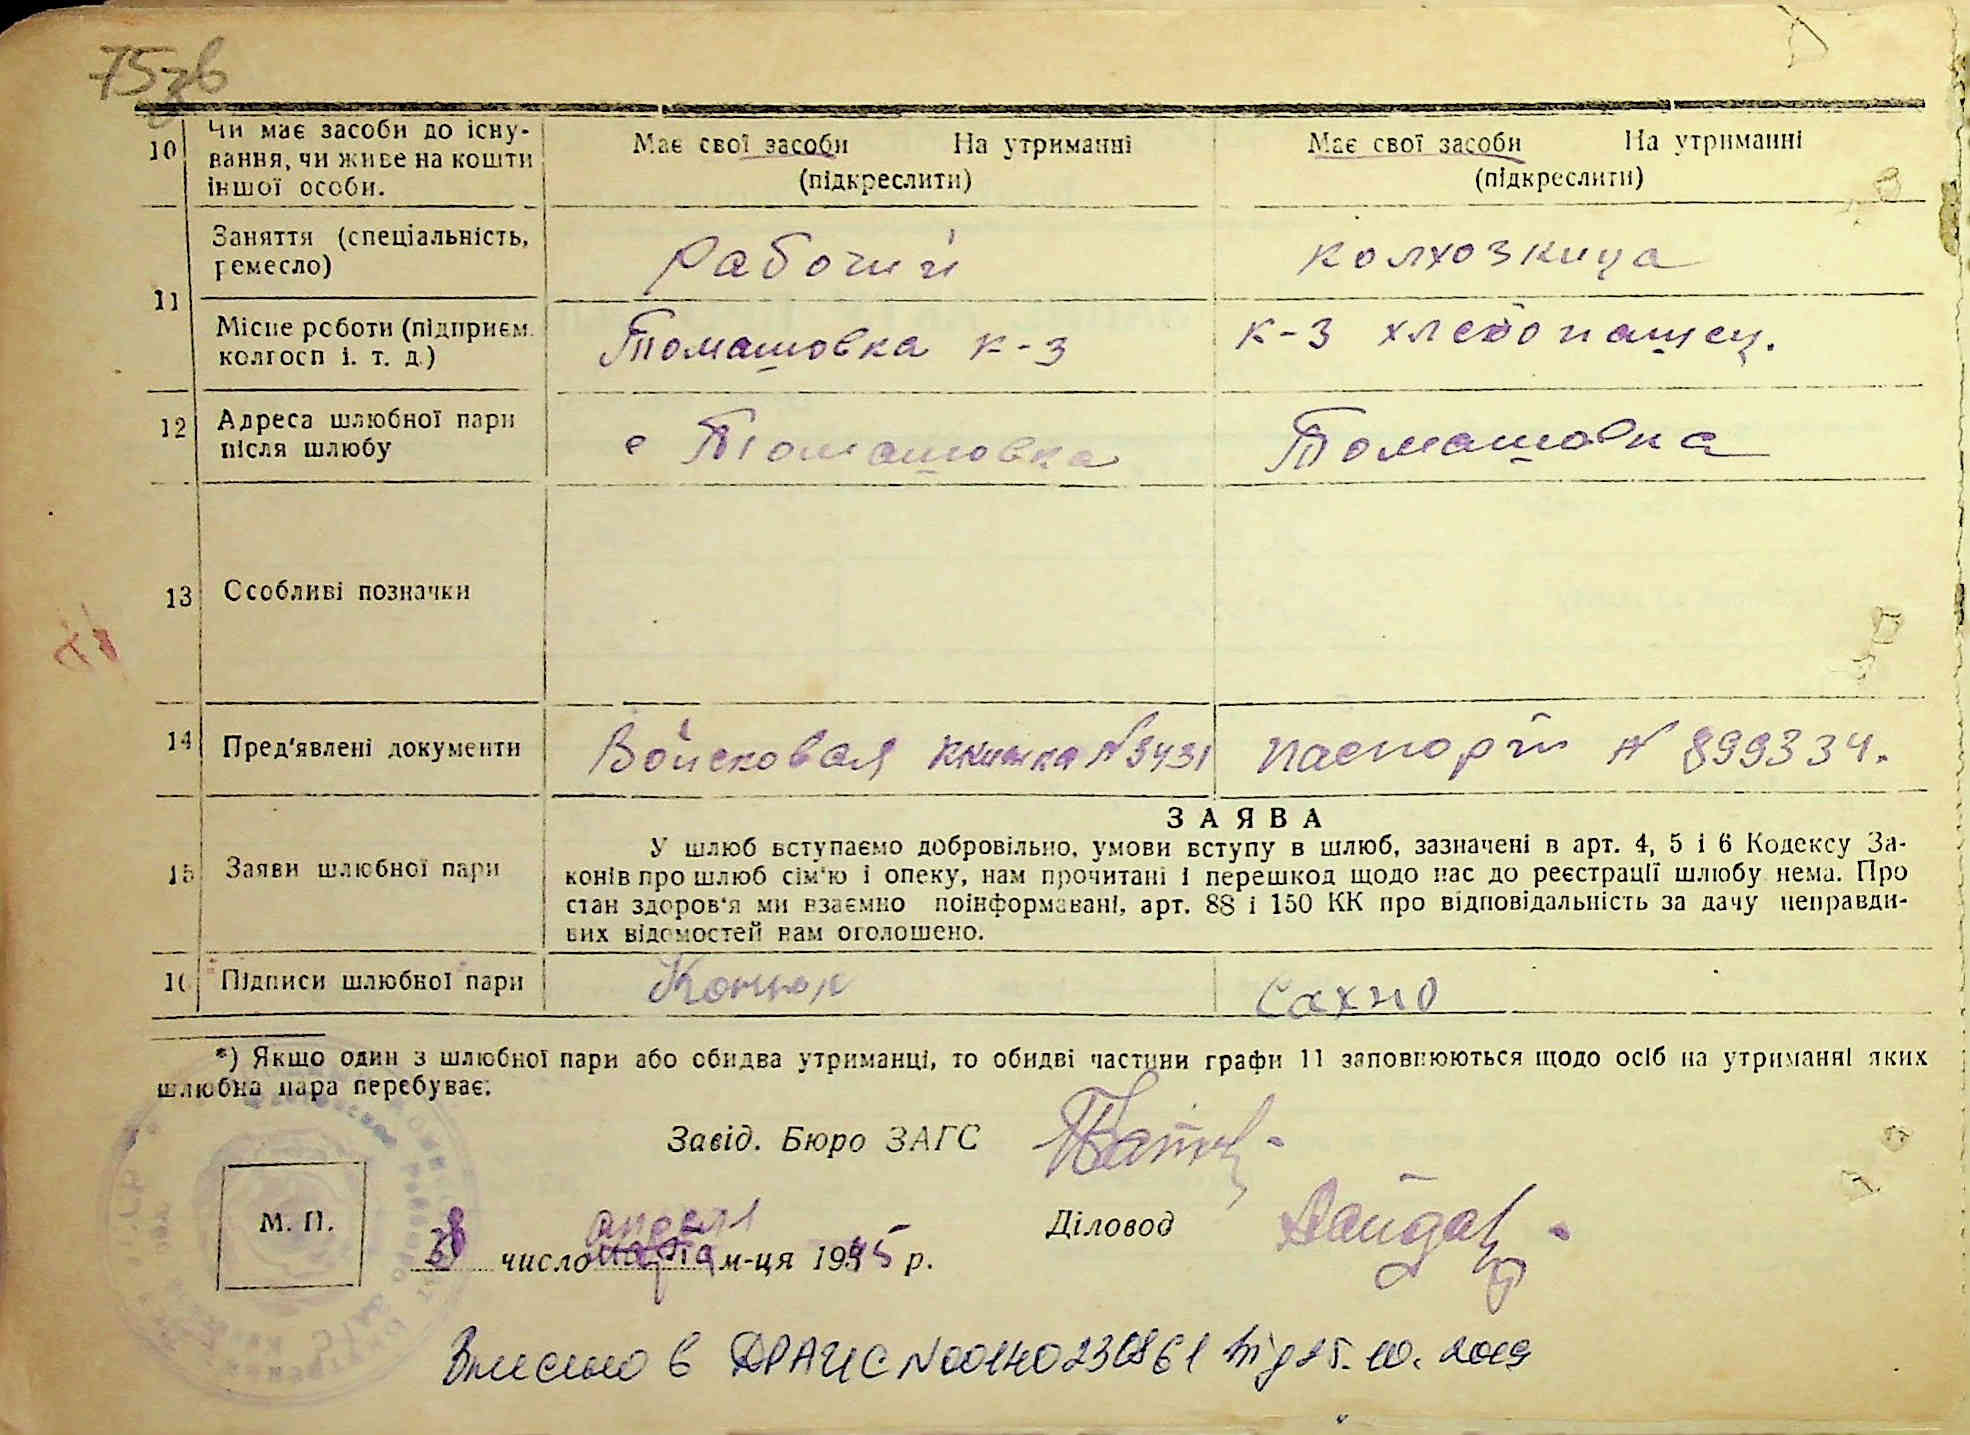 75зв
10 Чи має засоби до існу-
вання, чи живе на кошти
іншої особи.
Має свої засоби На утриманні
(підкреслити)
Має свої засоби На утриманні
(підкреслити)
11 Заняття (спеціальність,
ремесло)
Рабочий
колхозница
Місце роботи (підприєм.
колгосп і. т. д.)
Томашовка к-з
к-з хлебопашец.
12 Адреса шлюбної пари
після шлюбу
с Томашовка
Томашовка
13 Особливі позначки
14 Пред'явлені документи
Войсковая книжка N 3431
паспорт N 899334.
15 Заяви шлюбної пари
ЗАЯВА
У шлюб вступаємо добровільно, умови вступу в шлюб, зазначені в арт. 4, 5 і 6 Кодексу За-
конів про шлюб сім'ю і опеку, нам прочитані і перешкод щодо нас до реєстрації шлюбу нема. Про
стан здоров'я ми взаємно поінформавані, арт. 88 і 150 КК про відповідальність за дачу неправди-
вих відомостей нам оголошено.
16 Підписи шлюбної пари
Сахно
*) Якщо один з шлюбної пари або обидва утриманці, то обидві частини графи 11 заповнюються щодо осіб на утриманні яких
шлюбна пара перебуває.
Завід. Бюро ЗАГС
М. П.
число апреля марта м-ця 1945 р.
Діловод
Внесено в ДРАЦС N00140230861 від 25.10.2019